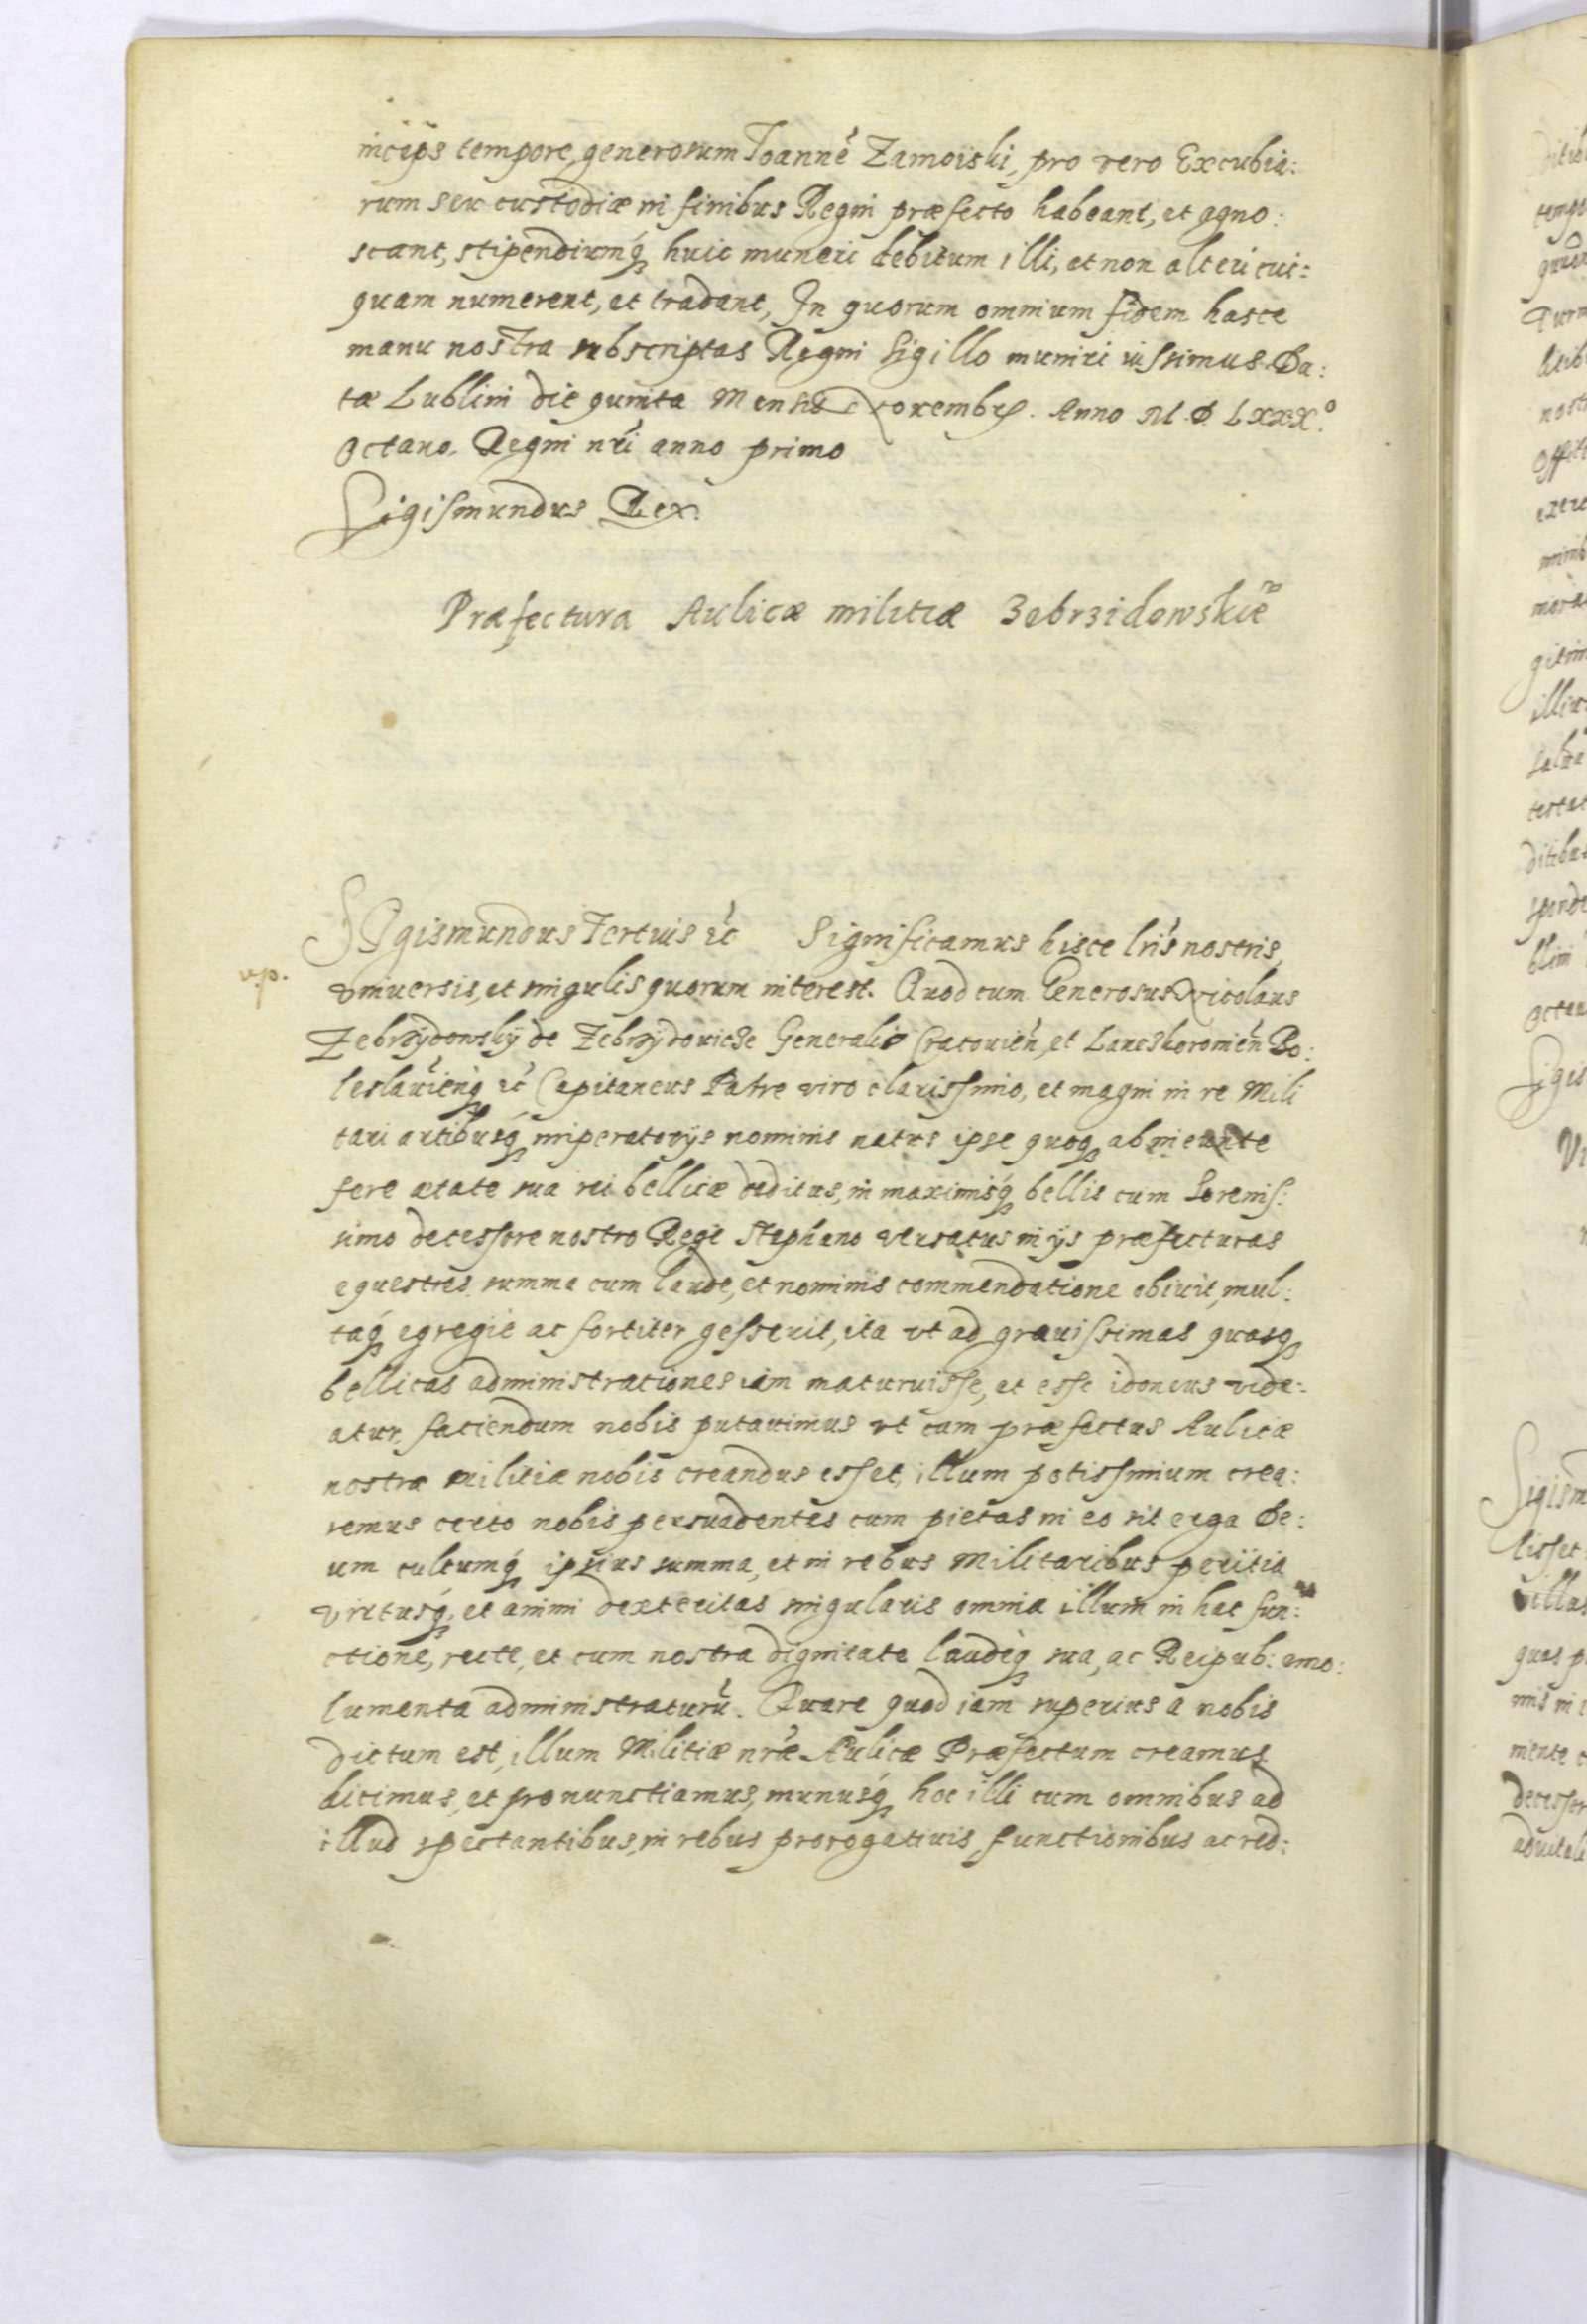 inceps tempore, generosum Joannẽ Zamoiski, pro vero Excubia:
rum seu custodiæ in finibus Regni præfecto habeant, et agno:
scant, stipendiumq́; huic muneri debitum illi, et non alteri cui:
quam numerent, et tradant, In quorum omnium fidem hasce
manu nostra subscriptas Regni Sigillo muniri iussimus. Da:
tæ Lublini die quinta Mensis Novembris. Anno M. D. LXXX.º
Octavo. Regni nr̃i anno primo
Sigismundus Rex.
Præfectura Aulicæ militiæ Zebrzidowskie
SIgismundus Tertius etc̃ Significamus hisce lr̃is nostris,
vniuersis, et singulis quorum interest. Quod cum Generosus Nicolaus
Zebrzÿdowskÿ de Zebrzÿdowicze Generalis Cracouień, et Lanckoronień Bo:
leslauieńq́; etc̃ Capitaneus Patre viro clarissimo, et magni in re Mili
tari artibusq́; imperatorijs nominis natus ipse quoq; ab ineunte
fere ætate sua rei bellicæ deditus, in maximisq́; bellis cum Serenis:
simo decessore nostro Rege Stephano versatus in ijs præfecturas
equestres summa cum laude, et nominis commendatione obiuit, mul:
taq́; egregie ac fortiter gesserit, ita vt ad grauissimas quasq;
bellicas administrationes iam maturuisse, et esse idoneus vide:
atur, faciendum nobis putauimus vt cum præfectus Aulicæ
nostræ militiæ nobis creandus esset, illum potissimum crea:
remus certo nobis persuadentes cum pietas in eo sit erga De:
um cultumq́; ipsius summa, et in rebus Militaribus peritia
virtusq́; et animi dexteritas singularis omnia illum in hac fun:
ctione, recte, et cum nostra dignitate laudeq́; sua, ac Reipub: emo:
lumenta administraturũ. Quare quod iam superius a nobis
dictum est, illum Militiæ nr̃æ Aulicæ Præfectum creamus
dicimus, et pronunctiamus, munusq́; hoc illi cum omnibus ad
illud spectantibus, in rebus prerogatiuis functionibus ac red: